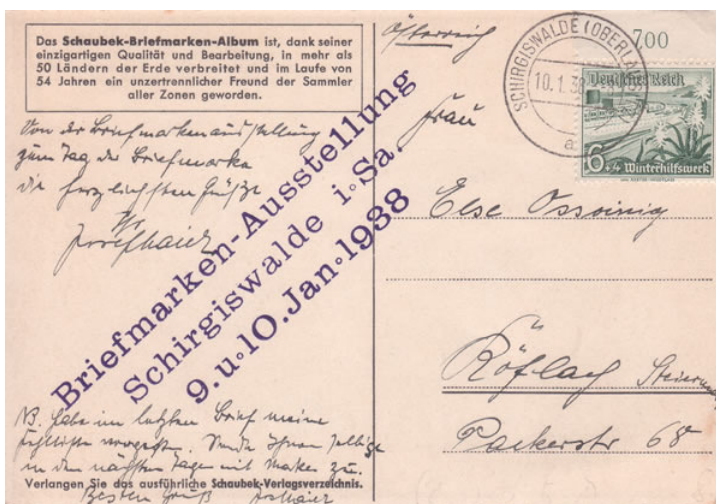 Das Schaubek-Briefmarken-Album ist, dank seiner
einzigartigen Qualität und Bearbeitung, in mehr als
50 Ländern der Erde verbreitet und im Laufe von
54 Jahren ein unzertrennlicher Freund der Sammler
aller Zonen geworden.
Von der Briefmarkenausstellung
zum Tag der Briefmarke
die herzlichsten Grüße
Ihr
Josef Maier
Briefmarken-Ausstellung
Schirgiswalde i. Sa.
9. u. 10. Jan. 1938
NB. Habe im letzten Brief meine
Fehlliste vergessen. Sende Ihnen selbige
in den nächsten Tagen mit Marken zu.
Verlangen Sie das ausführliche Schaubek-Verlagsverzeichnis.
Besten Gruß
Österreich
SCHIRGISWALDE (OBERLAUSITZ)
10.1.38
a
700
Deutsches Reich
6+4 Winterhilfswerk
Frau
Else Ossoinig
Köflach
Packerstr 68